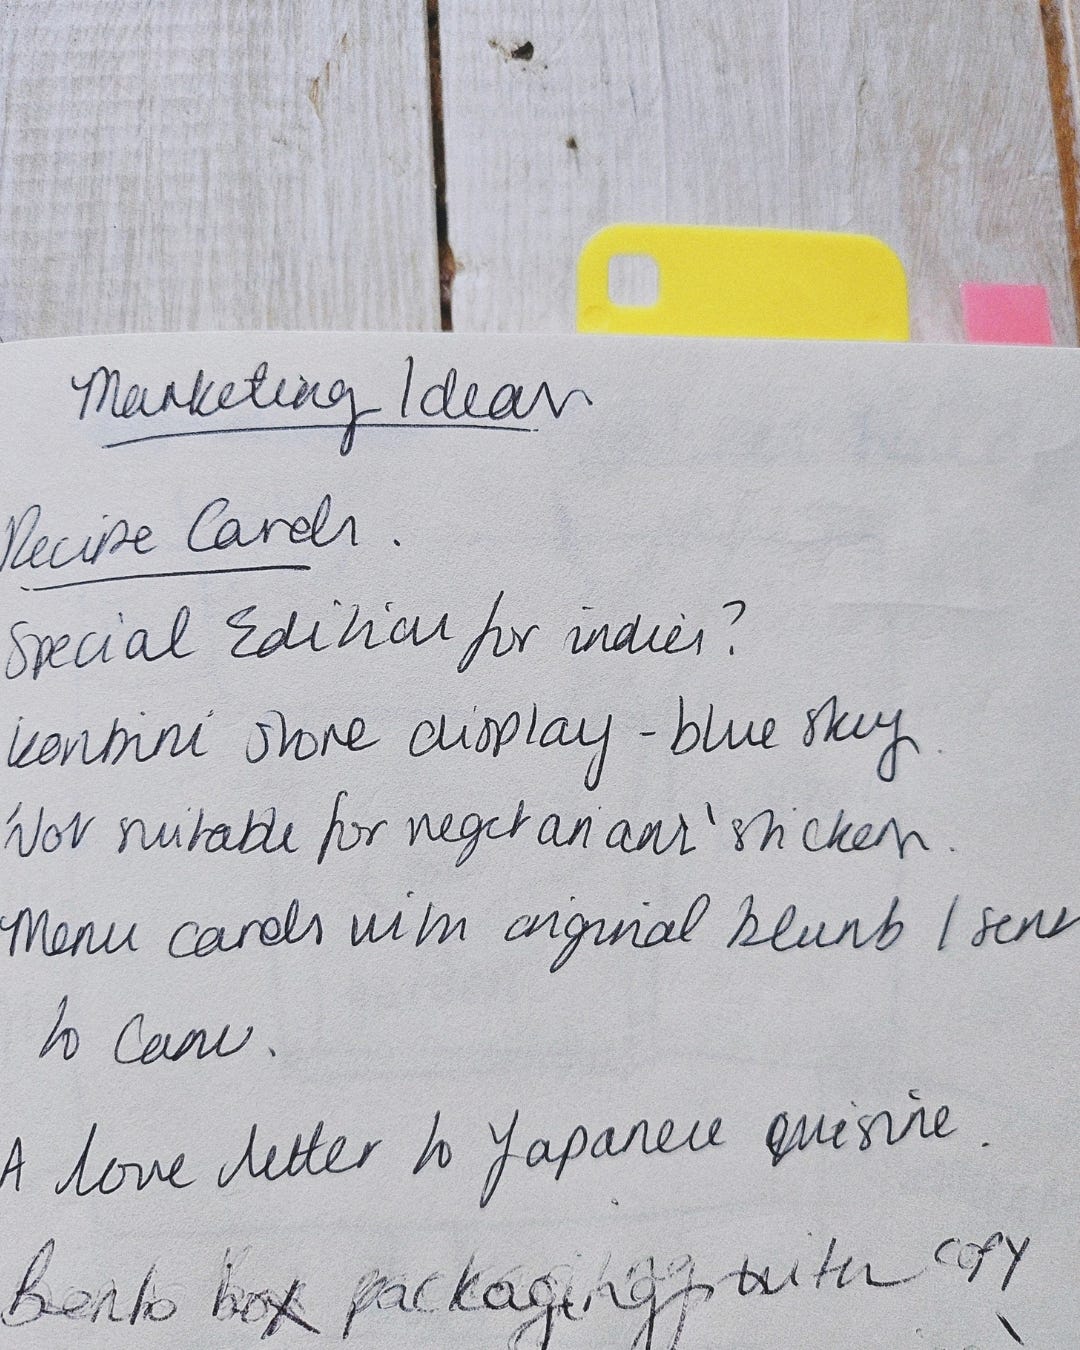 Marketing Ideas
Recipe Cards.
Special Edition for indies?
konbini store display - blue sky.
'Not suitable for vegetarians' stickers.
Menu cards with original blurb I sent
to
A love letter to Japanese quisine.
Bento box packaging with copy